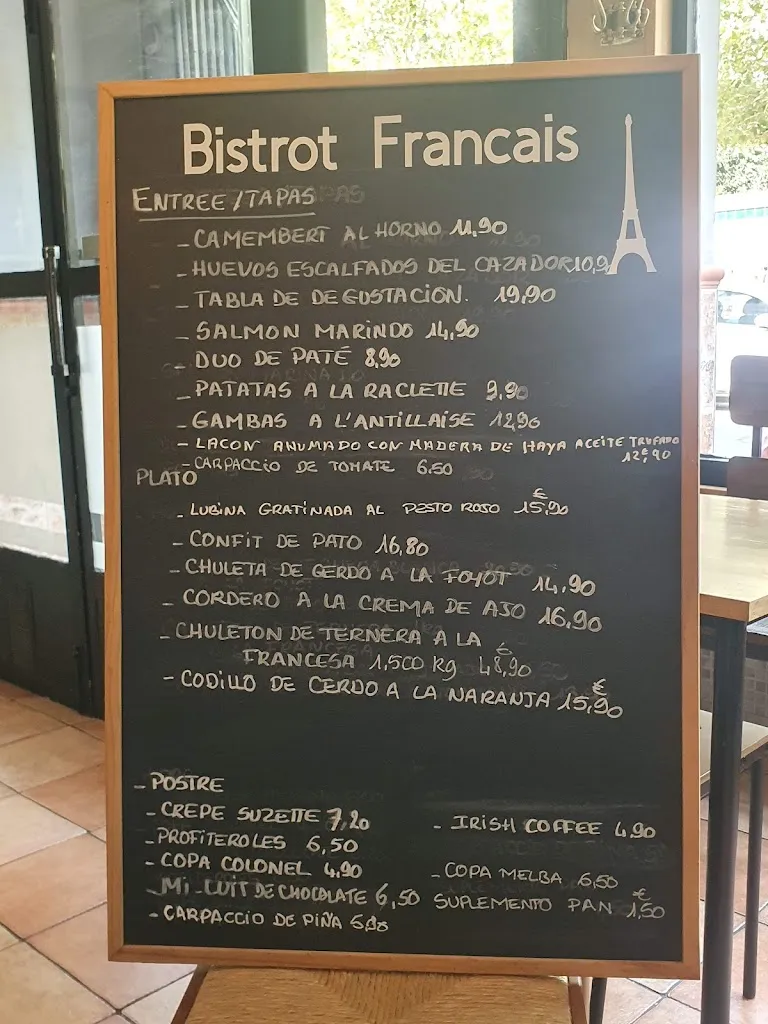 Bistrot Francais
ENTREE/TAPAS
- CAMEMBERT AL HORNO 11,90
- HUEVOS ESCALFADOS DEL CAZADOR 10,9
- TABLA DE DEGUSTACION. 19,90
- SALMON MARINDO 14,90
- DUO DE PATÉ 8,90
- PATATAS A LA RACLETTE 9,90
- GAMBAS A L'ANTILLAISE 12,90
- LACON AHUMADO CON MADERA DE HAYA ACEITE TRUFADO
12€,90
- CARPACCIO DE TOMATE 6.50
PLATO
- LUBINA GRATINADA AL PESTO ROSO 15,90€
- CONFIT DE PATO 16,80
- CHULETA DE CERDO A LA FOYOT 14,90
- CORDERO A LA CREMA DE AJO 16,90
- CHULETON DE TERNERA A LA
FRANCESA 1,500 Kg 48,90€
- CODILLO DE CERDO A LA NARANJA 15,90€
- POSTRE
- CREPE SUZETTE 7,20
- PROFITEROLES 6,50
- COPA COLONEL 4,90
- MI-CUIT DE CHOCOLATE 6,50
- CARPACCIO DE PIÑA 5,90
- IRISH COFFEE 4,90
- COPA MELBA 6,50
SUPLEMENTO PAN 1,50€